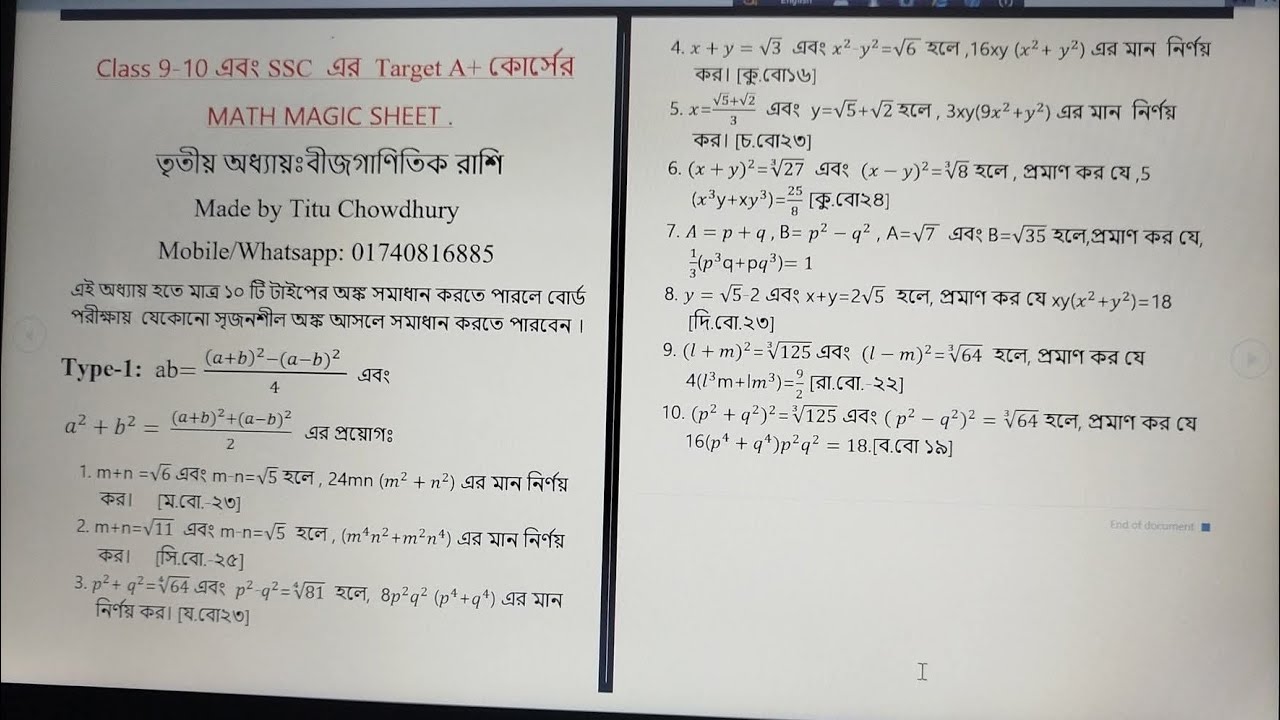 English
Class 9-10 এবং SSC এর Target A+ কোর্সের
MATH MAGIC SHEET .
তৃতীয় অধ্যায়ঃবীজগাণিতিক রাশি
Made by Titu Chowdhury
Mobile/Whatsapp: 01740816885
এই অধ্যায় হতে মাত্র ১০ টি টাইপের অঙ্ক সমাধান করতে পারলে বোর্ড
পরীক্ষায় যেকোনো সৃজনশীল অঙ্ক আসলে সমাধান করতে পারবেন ।
Type-1: ab= \frac{(a+b)²−(a−b)²}{4} এবং
a² + b² = \frac{(a+b)²+(a−b)²}{2} এর প্রয়োগঃ
1. m+n =√6 এবং m-n=√5 হলে , 24mn (m² + n²) এর মান নির্ণয়
কর। [ম.বো.-২৩]
2. m+n=√11 এবং m-n=√5 হলে , (m⁴n²+m²n⁴) এর মান নির্ণয়
কর। [সি.বো.-২৫]
3. p²+ q²=∜64 এবং p²-q²=∜81 হলে, 8p²q² (p⁴+q⁴) এর মান
নির্ণয় কর। [য.বো২৩]
4. x + y = √3 এবং x²-y²=√6 হলে ,16xy (x² + y²) এর মান নির্ণয়
কর। [কু.বো১৬]
5. x=\frac{√5+√2}{3} এবং y=√5+√2 হলে , 3xy(9x²+y²) এর মান নির্ণয়
কর। [চ.বো২৩]
6. (x + y)²=∛27 এবং (x − y)²=∛8 হলে , প্রমাণ কর যে ,5
(x³y+xy³)=\frac{25}{8} [কু.বো২৪]
7. A = p + q , B= p² − q² , A=√7 এবং B=√35 হলে,প্রমাণ কর যে,
\frac{1}{3}(p³q+pq³)= 1
8. y = √5-2 এবং x+y=2√5 হলে, প্রমাণ কর যে xy(x²+y²)=18
[দি.বো.২৩]
9. (l + m)²=∛125 এবং (l − m)²=∛64 হলে, প্রমাণ কর যে
4(l³m+lm³)=\frac{9}{2} [রা.বো.-২২]
10. (p² + q²)²=∛125 এবং ( p² − q²)² = ∛64 হলে, প্রমাণ কর যে
16(p⁴ + q⁴)p²q² = 18.[ব.বো ১৯]
End of document